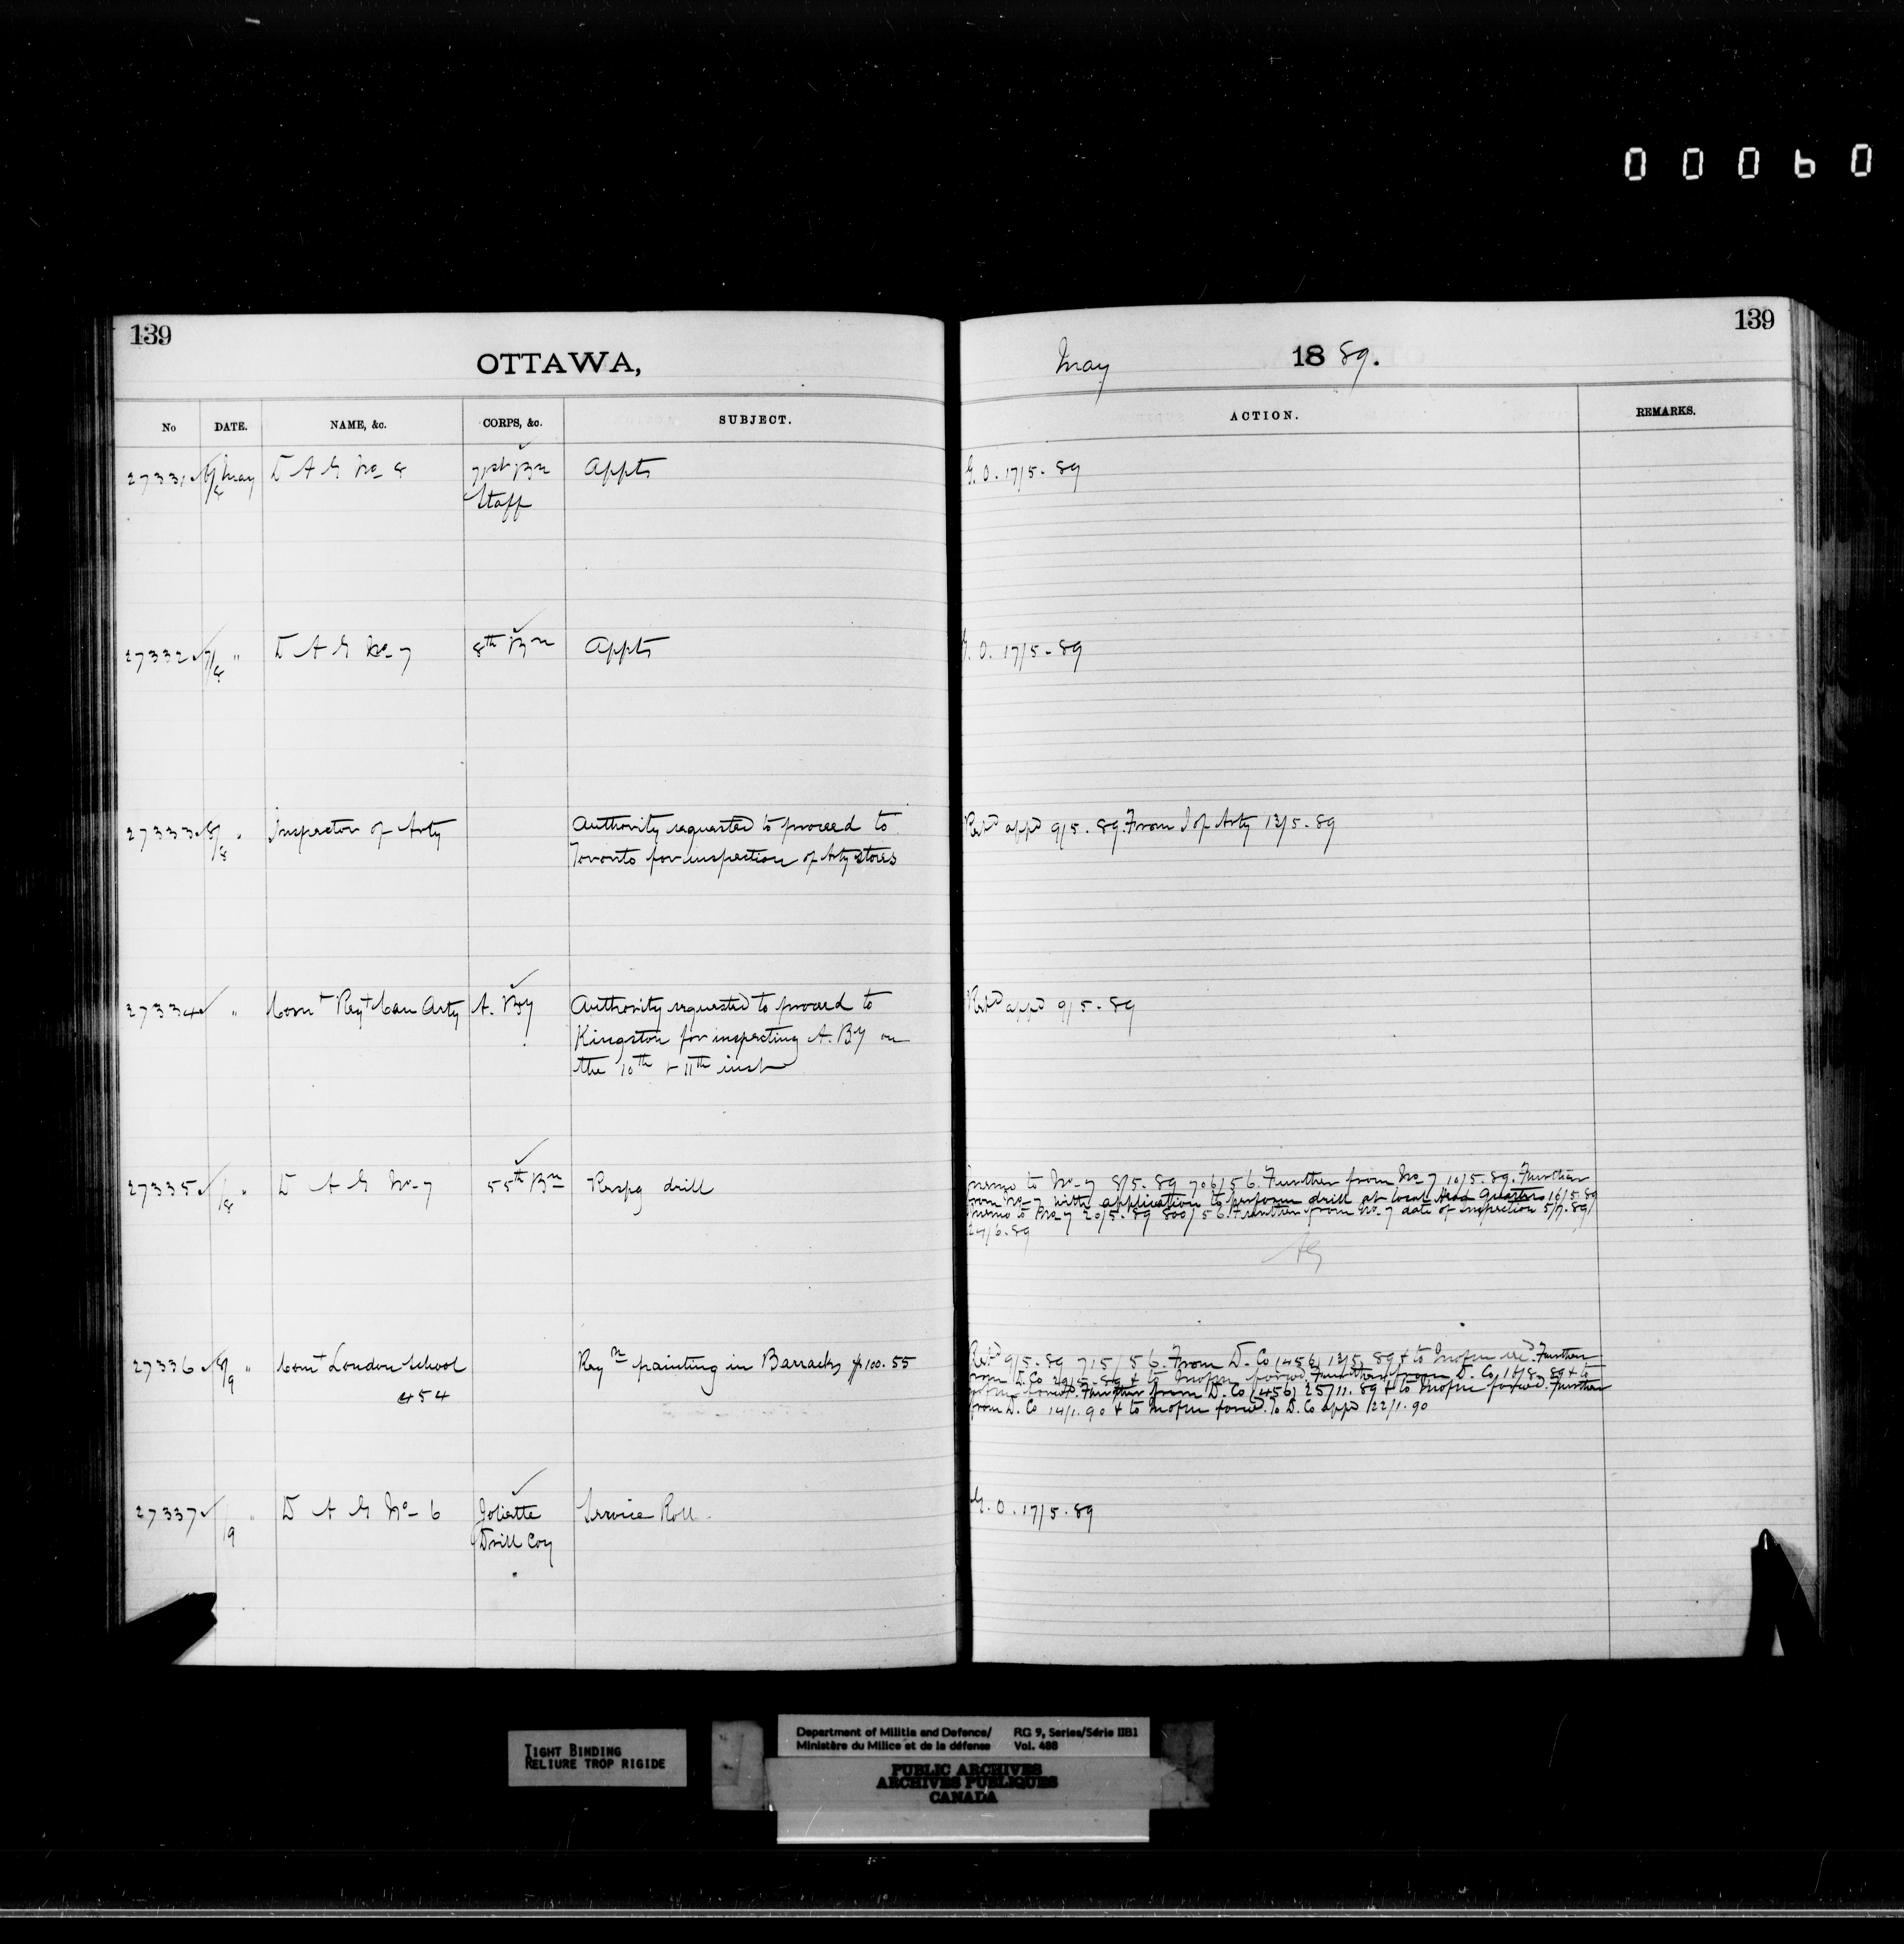 00060
139
139
OTTAWA,
May 1889.
No DATE. NAME, &c. CORPS, &c. SUBJECT. ACTION. REMARKS.
27331 6/8 May D A G No 8 71st Bn Appts G.O. 17/5-89
Staff
27332 7/8 " D A G No-7 8th Bn Appts G.O. 17/5-89
27333 8/8 " Inspector of Arty Authority requested to proceed to Ret'd app'd 9/5.89. From I of Arty 13/5-89
Toronto for inspection of Arty stores
27334 " Comt Regt Can Arty A. By Authority requested to proceed to Ret'd app'd 9/5-89
Kingston for inspecting A. By on
the 10th + 11th inst
27335 /8 " D A G No-7 55th Bn Respg drill memo to No-7 8/5.89 706/56. Further from No 7 10/5.89. Further
from No-7 with application to perform drill at local Head Quarters 16/5.89
memo to No-7 20/5.89 800/56. Further from No-7 date of inspection 5/7.89/
24/6.89
AG
27336 8/9 " Comt London School Reqn painting in Barracks $100.55 Ret'd 9/5.89 715/56. From D. Co (456) 13/5.89 + to Mofm rec'd. Further
454 from D. Co 20/5.89 + to Mofm forwd. Further from D. Co, 16/8.89 + to
Mofm forwd. Further from D. Co (456) 25/11.89 + to Mofm forwd. Further
from D. Co 14/1.90 + to Mofm forwd. To D. Co app'd 22/1.90
27337 /9 " D A G No-6 Joliette Service Roll. G.O. 17/5.89
Drill Coy
TIGHT BINDING
RELIURE TROP RIGIDE
Department of Militia and Defence/ RG 9, Series/Série IIB1
Ministère du Milice et de la défense Vol. 488
PUBLIC ARCHIVES
ARCHIVES PUBLIQUES
CANADA